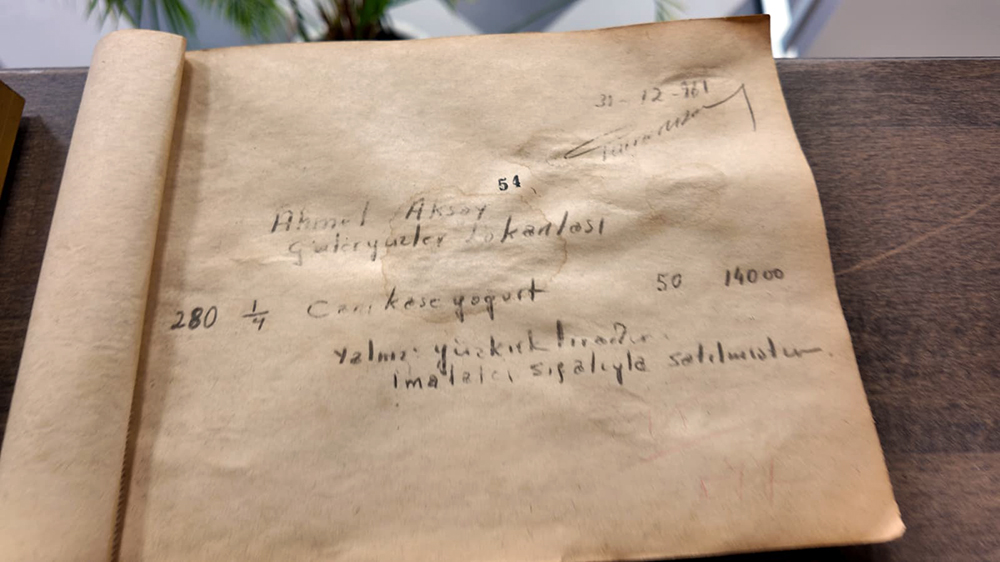 31-12-961
54
Ahmet Aksoy
Güleryüzler Lokantası
280 1/4 Cam kase yogurt 50 14000
yalnız yüzkırk liradır.
imalatcı sıfatıyla satılmıstır.